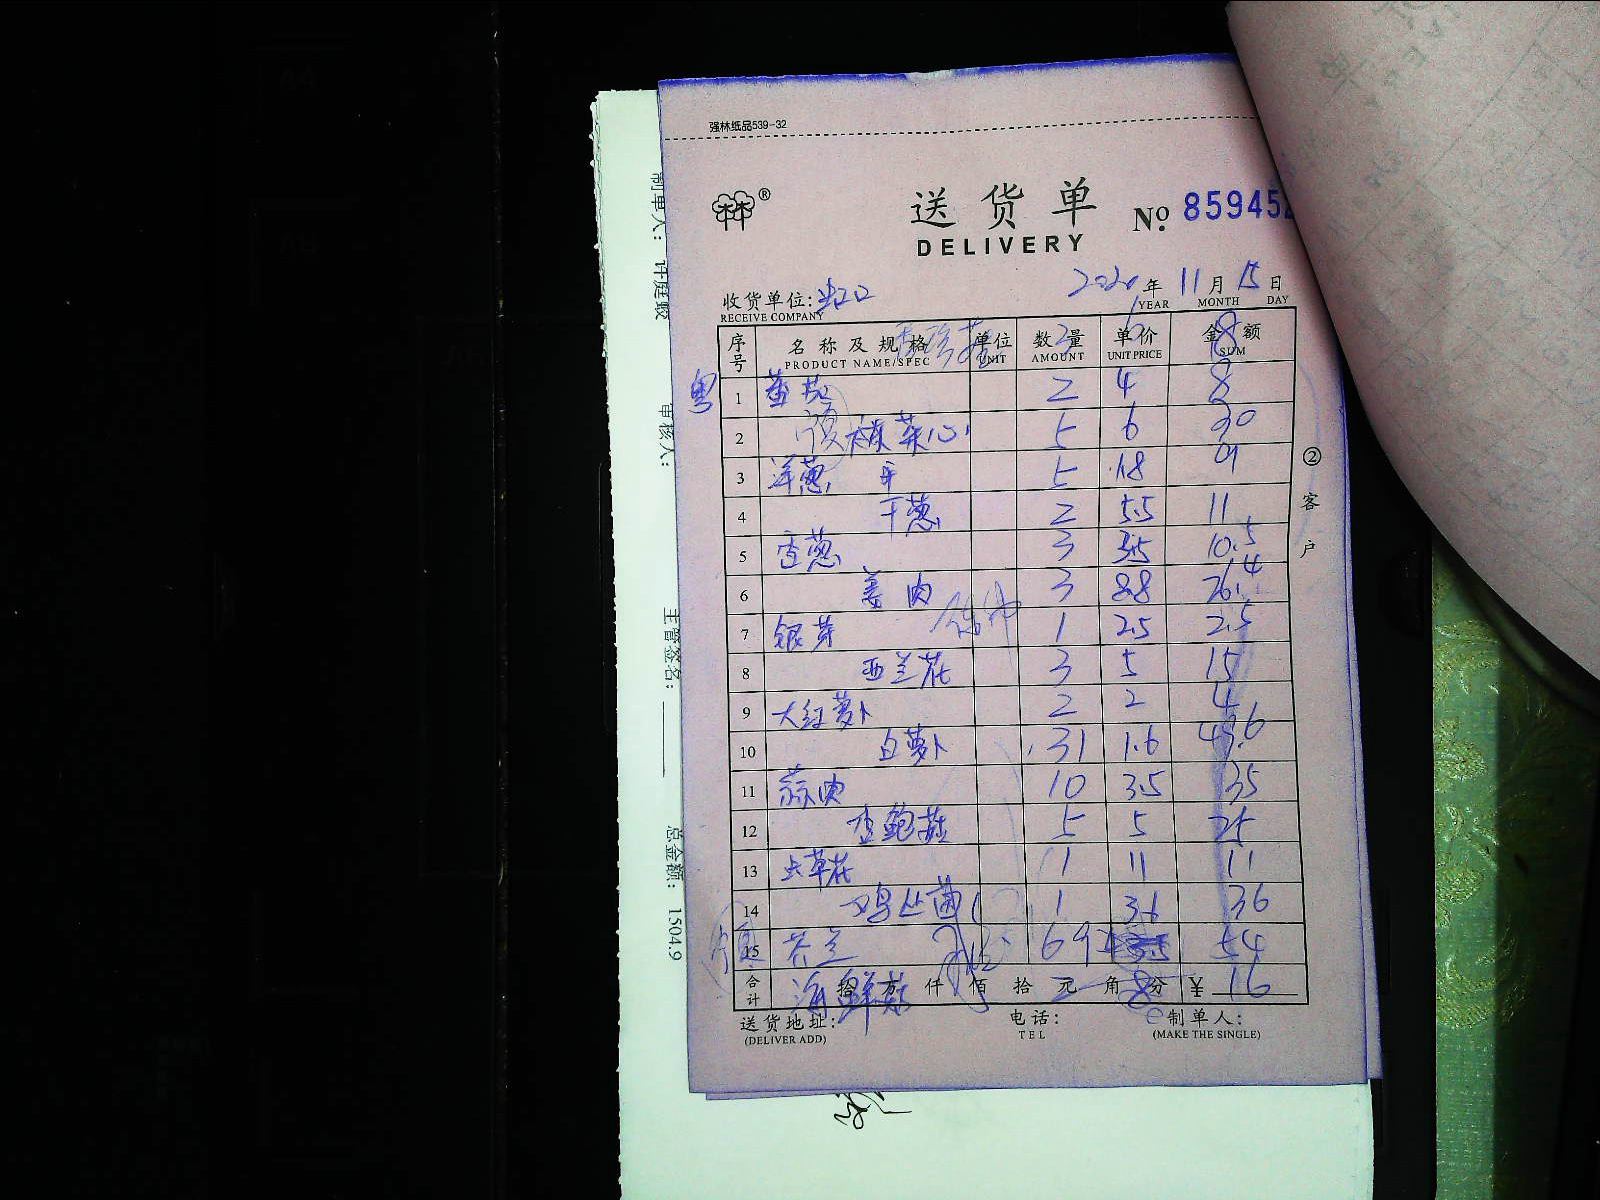 强林纸品539-32
林®
送货单 No. 85945
DELIVERY
收货单位: 2020年11月15日
RECEIVE COMPANY YEAR MONTH DAY
序号 名称及规格 单位 数量 单价 金额
PRODUCT NAME/SPEC UNIT AMOUNT UNIT PRICE SUM
3 6 18
1 2 4 8
2 菜心 5 6 30
3 洋葱 5 1.8 9
4 干葱 2 5.5 11
5 香葱 3 3.5 10.5
6 姜肉 3 8.8 26.4
7 银芽 1 2.5 2.5
8 西兰花 3 5 15
9 大红萝卜 2 2 4
10 白萝卜 31 1.6 49.6
11 蒜肉 10 3.5 35
12 杏鲍菇 5 5 25
13 虫草花 1 11 11
14 鸡丛菌 1 36 36
15 芥兰 54
合计 拾 万 仟 佰 拾 元 角 分 ¥
海鲜菇 2 8 16
送货地址: 电话: 制单人:
(DELIVER ADD) TEL (MAKE THE SINGLE)
②客户
制单人: 许庭蛟
审核人:
主管签名:
总金额: 1504.9